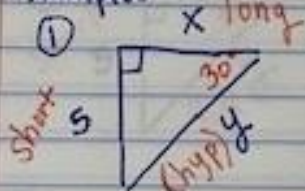 ①
x long
30°
short 5
(hyp) y